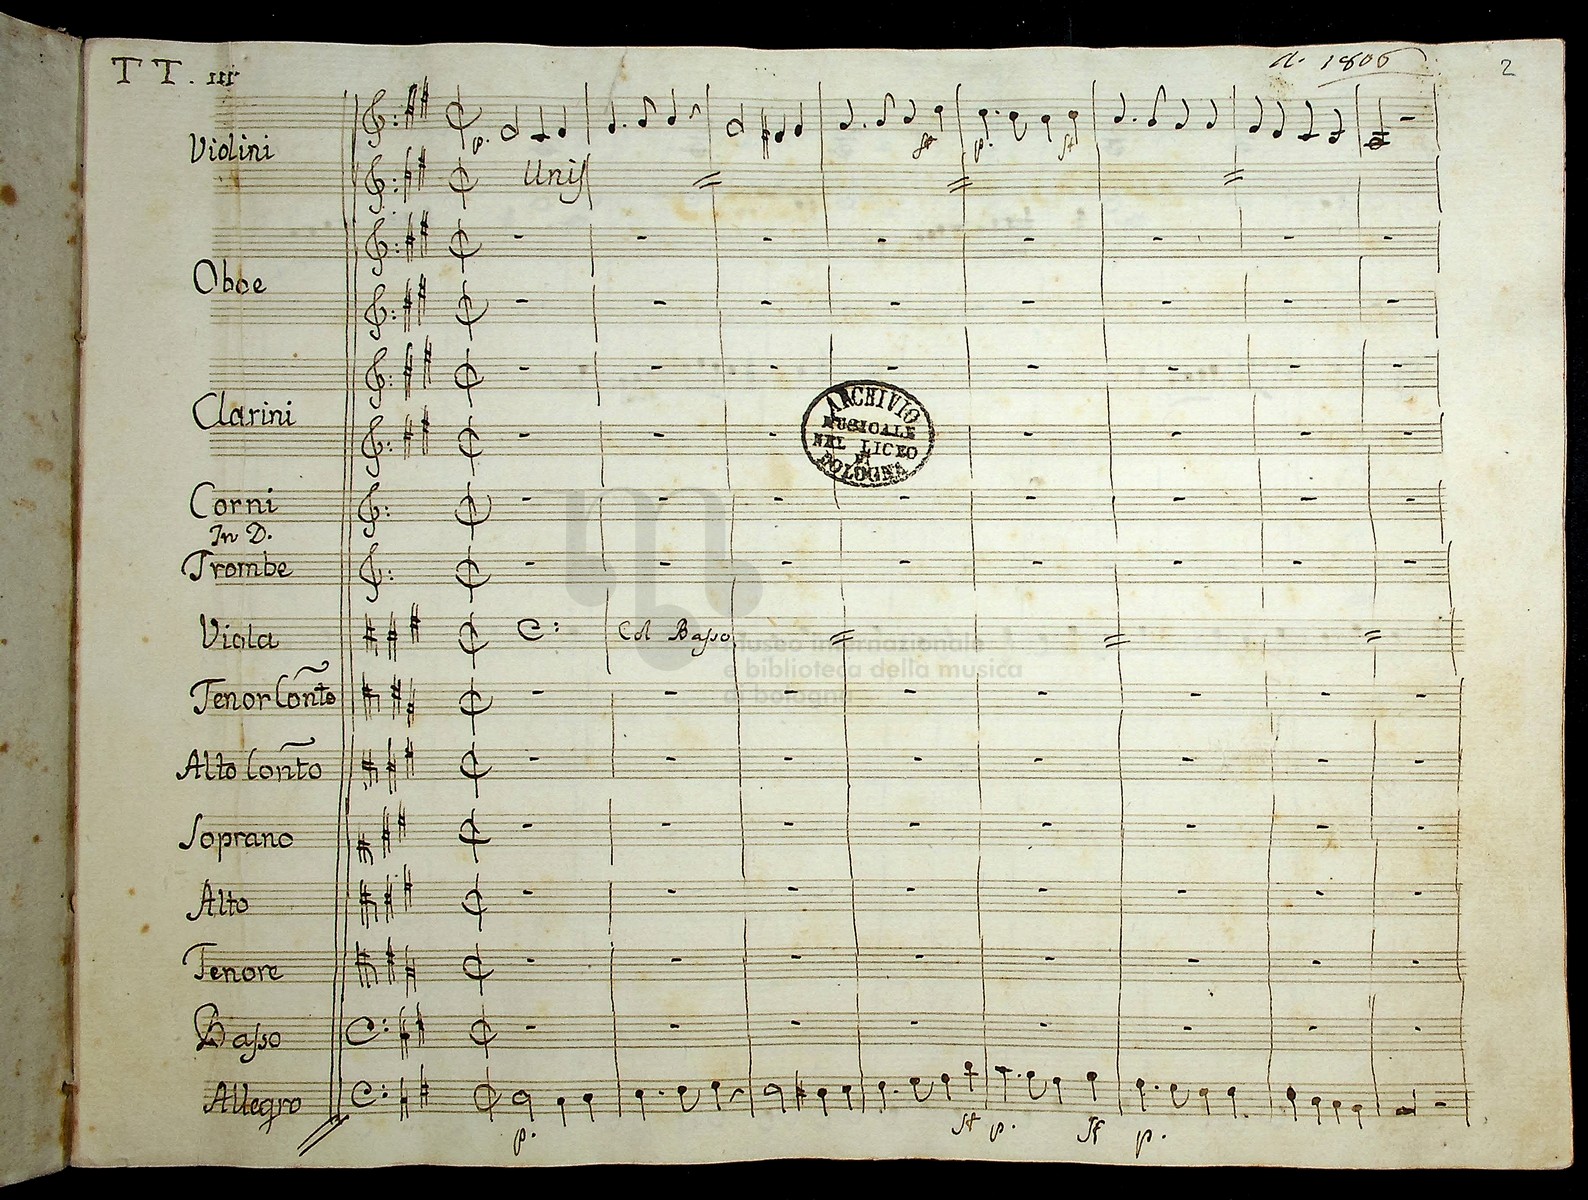 TT. III
a. 1806
2
Violini
p.
sf
p.
sf
Unis
Oboe
Clarini
ARCHIVIO
MUSICALE
NEL LICEO
DI
BOLOGNA
Corni
In D.
Trombe
Viola
Col Basso
Museo internazionale
e biblioteca della musica
di bologna
Tenor Conto
Alto Conto
Soprano
Alto
Tenore
Basso
Allegro
p.
sf
p.
sf
p.